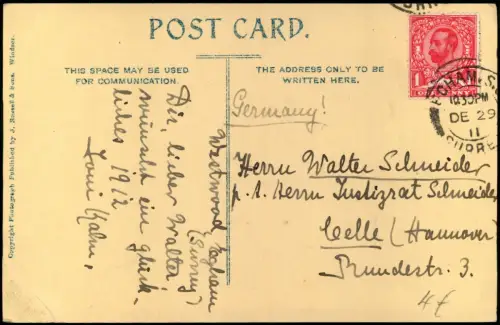 POST CARD.
THIS SPACE MAY BE USED
FOR COMMUNICATION.
THE ADDRESS ONLY TO BE
WRITTEN HERE.
Copyright Photograph Published by J. Russell & Sons. Windsor.
Westwood, Egham
(Surrey)
Dir, lieber Walter,
wünscht ein glück-
liches 1912
Germany!
Herrn Walter Schneider
p. A. Herrn Justizrat Schneider
Celle (Hannover)
Bundestr. 3.
EGHAM. S.O.
10.30PM
DE 29
11
SURREY
1
4€